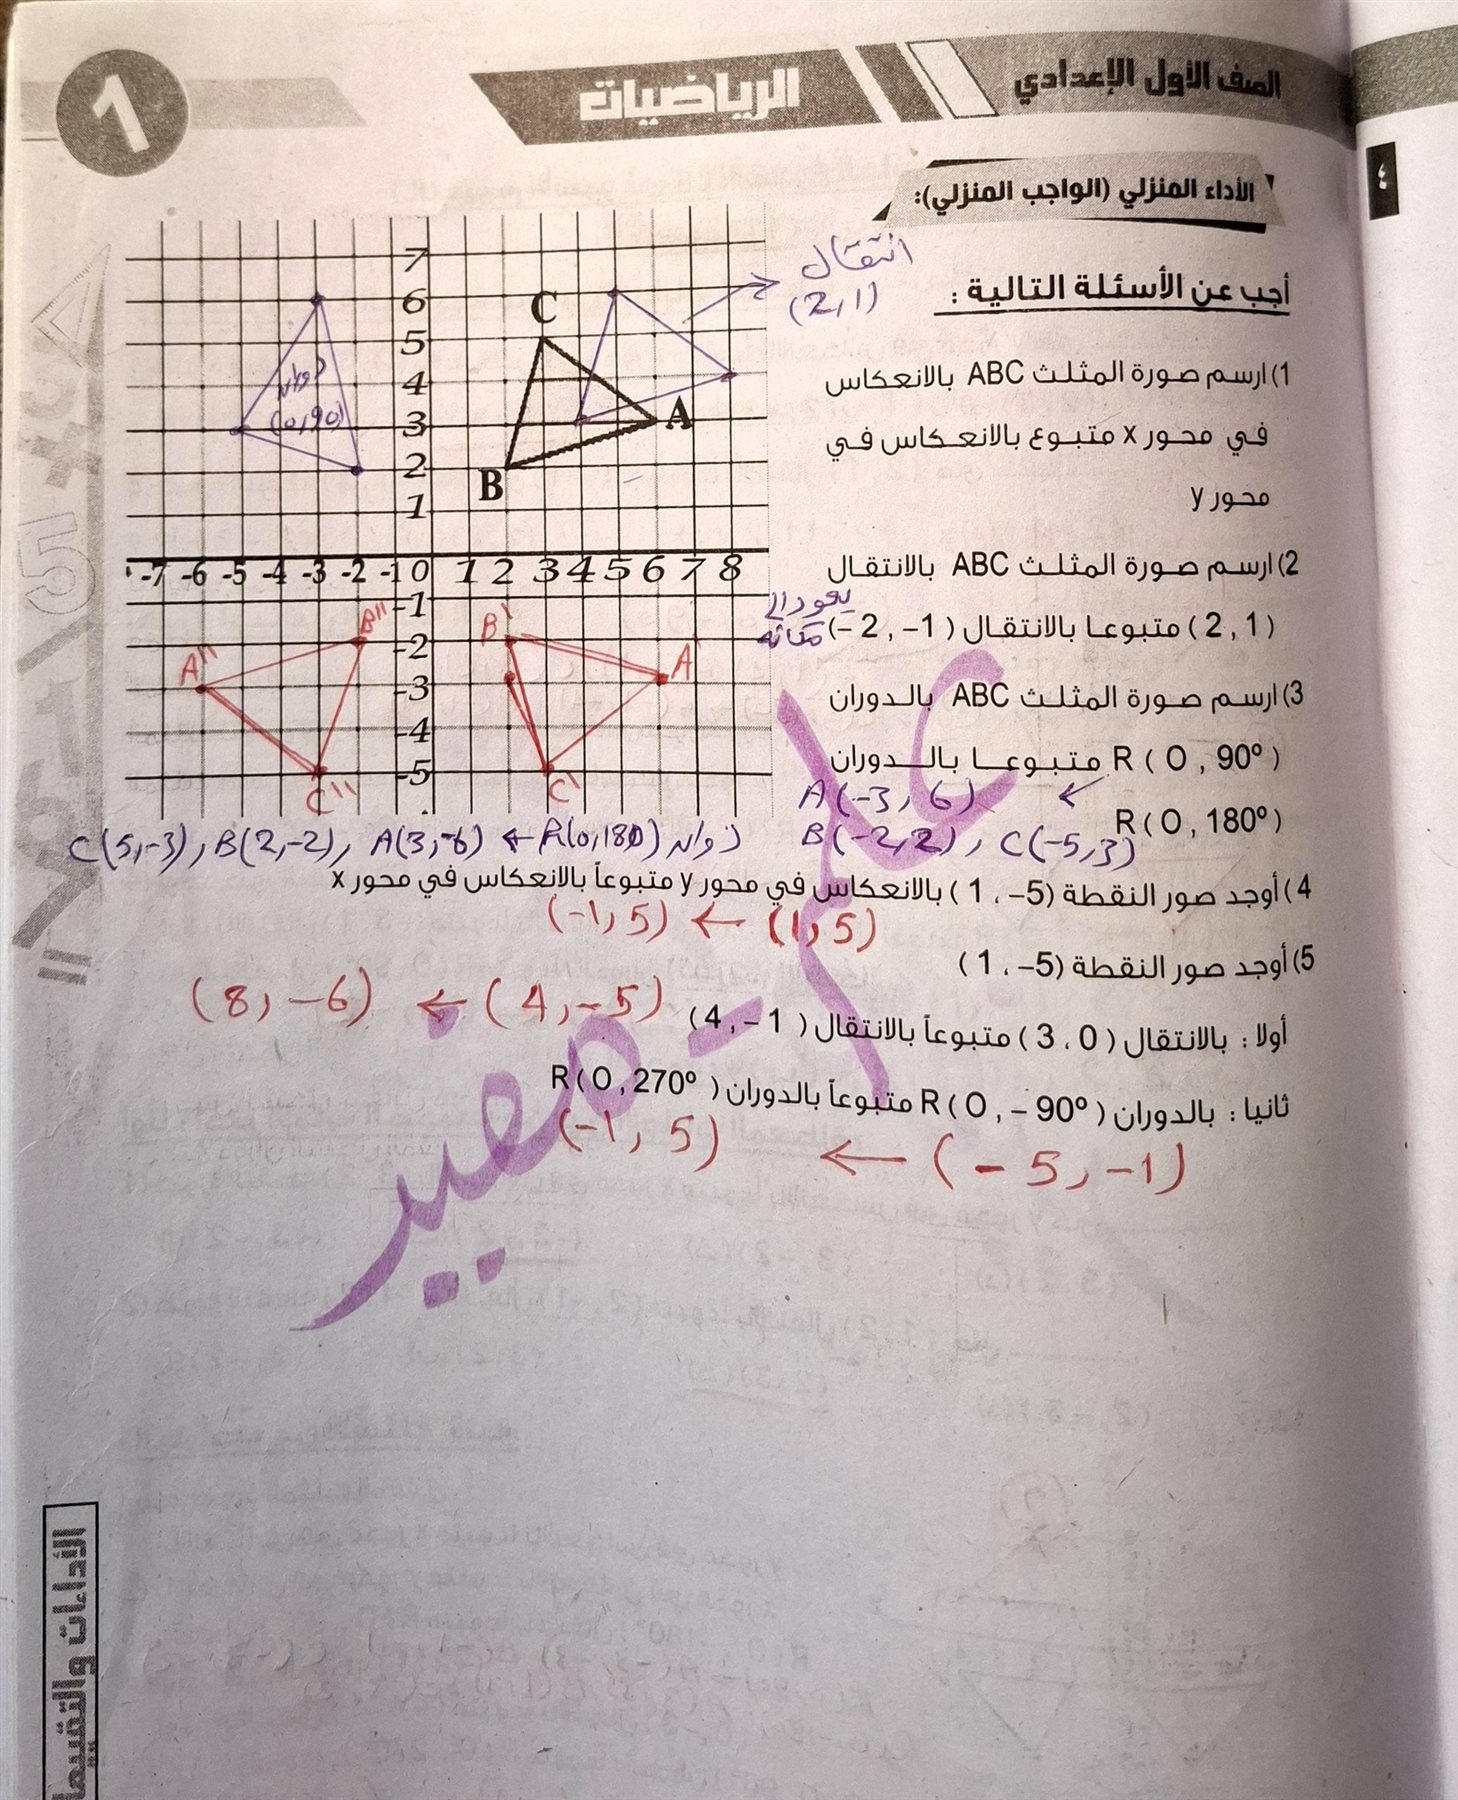 الصف الأول الإعدادي
الرياضيات
1
٤
الأداء المنزلي (الواجب المنزلي):
أجب عن الأسئلة التالية :
1) ارسم صورة المثلث ABC بالانعكاس
في محور x متبوع بالانعكاس في
محور y
2) ارسم صورة المثلث ABC بالانتقال
(2 , 1) متبوعا بالانتقال (-2 , -1)
يعود الى
مكانه
3) ارسم صورة المثلث ABC بالدوران
R ( O , 90º ) متبوعا بالدوران
R ( O , 180º )
A (-3, 6) ←
B (-2, 2) , C (-5, 3)
دوران R(0, 180) ← A(3, -6) , B(2, -2) , C(5, -3)
4) أوجد صور النقطة (1 ، -5) بالانعكاس في محور y متبوعاً بالانعكاس في محور x
(1, 5) ← (-1, 5)
5) أوجد صور النقطة (1 ، -5)
أولا : بالانتقال (3 ، 0) متبوعاً بالانتقال (4 , -1)
(4, -5) ← (8, -6)
ثانيا : بالدوران R ( O , - 90º ) متبوعاً بالدوران R ( O , 270º )
(-5, -1) ← (-1, 5)
انتقال
(2, 1)
دوران
(0, 90)
7
6
5
4
3
2
1
-7 -6 -5 -4 -3 -2 -1 0 1 2 3 4 5 6 7 8
-1
-2
-3
-4
-5
C
A
B
B'
A'
C'
B''
A''
C''
علم - مفيد
الأداءات والتقييما